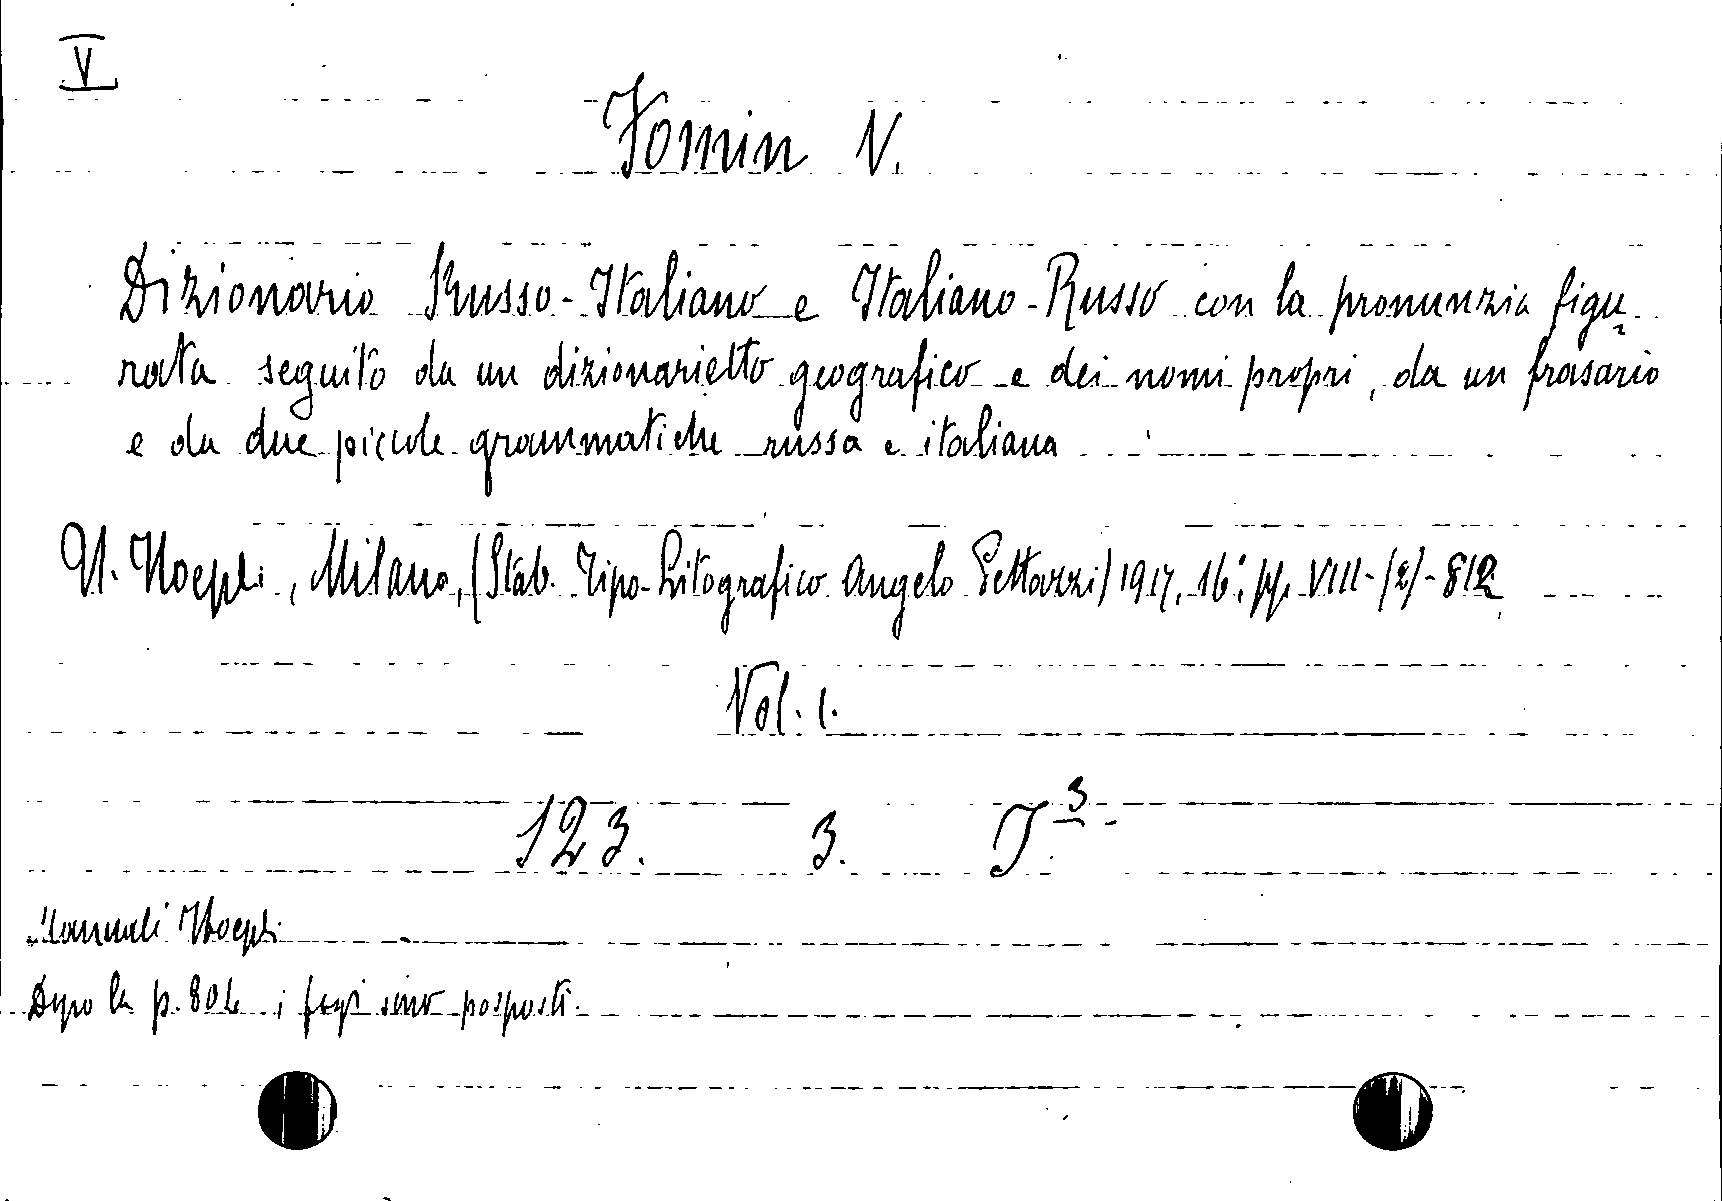 V
Fomin V.
Dizionario Russo-Italiano e Italiano-Russo con la pronunzia figu-
rata seguito da un dizionarietto geografico e dei nomi propri, da un frasario
e da due piccole grammatiche russa e italiana
U. Hoepli, Milano, (Stab. Tipo-Litografico Angelo Pettazzi) 1917, 16°, pp. VIII-(2)-812
Vol. 1.
123. 3. J.3.
Manuali Hoepli
Dopo la p. 804 i fogli sono posposti.